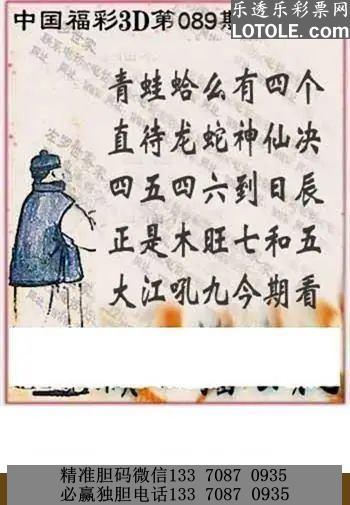 中国福彩3D第089期
乐透乐彩票网
LOTOLE.COM
青蛙蛤么有四个
直待龙蛇神仙决
四五四六到日辰
正是木旺七和五
大江吼九今期看
精准胆码微信133 7087 0935
必赢独胆电话133 7087 0935